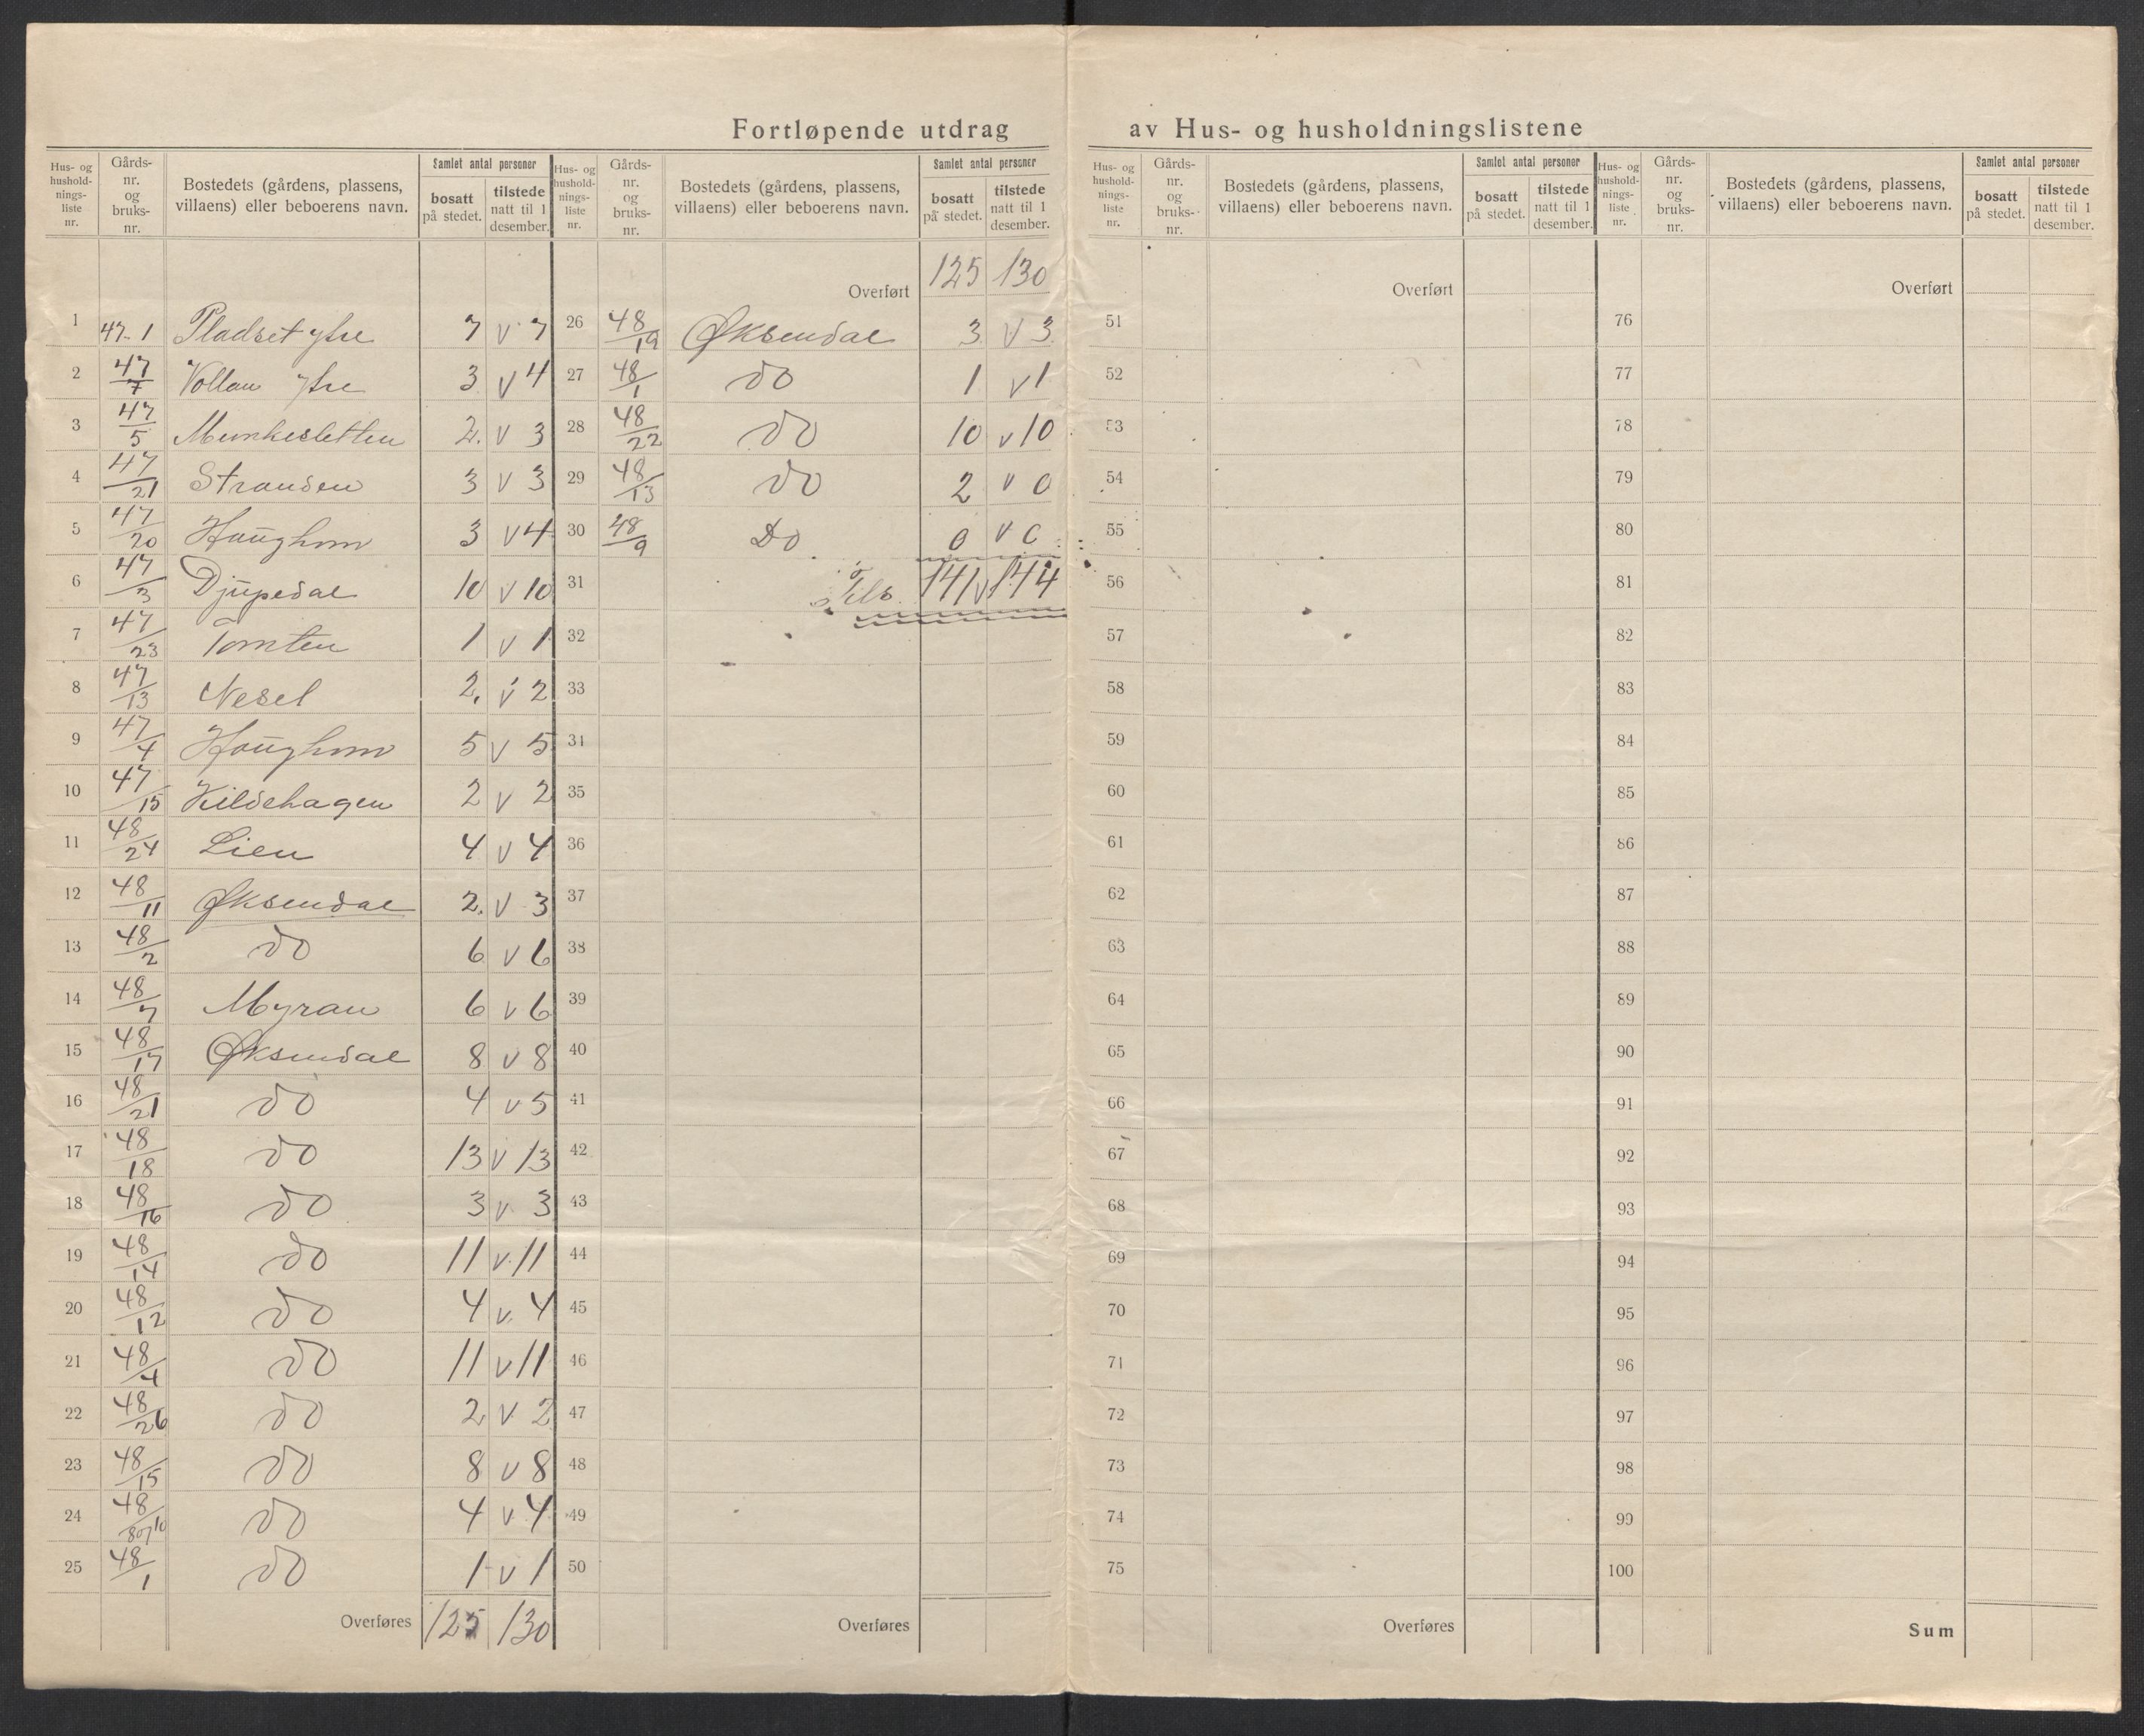 Fortløpende utdrag av Hus- og husholdningslistene
Hus- og hushold-nings-liste nr. Gårds-nr. og bruks-nr. Bostedets (gårdens, plassens, villaens) eller beboerens navn. Samlet antal personer bosatt på stedet. tilstede natt til 1 desember.
1 47-1 Pladset ytre 7 v 7
2 47/7 Vollan ytre 3 v 4
3 47/5 Munkesletten 2. v 3
4 47/21 Stranden 3 v 3
5 47/20 Haughom 3 v 4
6 47/3 Djupedal 10 v 10
7 47/23 Tomten 1 v 1
8 47/13 Neset 2. v 2
9 47/4 Haughom 5 v 5
10 47/15 Kildehagen 2 v 2
11 48/24 Lien 4 v 4
12 48/11 Øksendal 2. v 3
13 48/2 do 6 v 6
14 48/7 Myran 6 v 6
15 48/17 Øksendal 8 v 8
16 48/21 do 4 v 5
17 48/18 do 13 v 13
18 48/16 do 3 v 3
19 48/14 do 11 v 11
20 48/12 do 4 v 4
21 48/4 do 11 v 11
22 48/26 do 2 v 2
23 48/15 do 8 v 8
24 48/8 og 10 do 4 v 4
25 48/1 do 1 v 1
Overføres 125 130
Hus- og hushold-nings-liste nr. Gårds-nr. og bruks-nr. Bostedets (gårdens, plassens, villaens) eller beboerens navn. Samlet antal personer bosatt på stedet. tilstede natt til 1 desember.
Overført 125 130
26 48/19 Øksendal 3 v 3
27 48/1 do 1 v 1
28 48/22 do 10 v 10
29 48/13 do 2 v 0
30 48/9 Do 0 v 0
31 141 v 144
32
33
34
35
36
37
38
39
40
41
42
43
44
45
46
47
48
49
50
Overføres
Hus- og hushold-nings-liste nr. Gårds-nr. og bruks-nr. Bostedets (gårdens, plassens, villaens) eller beboerens navn. Samlet antal personer bosatt på stedet. tilstede natt til 1 desember.
Overført
51
52
53
54
55
56
57
58
59
60
61
62
63
64
65
66
67
68
69
70
71
72
73
74
75
Overføres
Hus- og hushold-nings-liste nr. Gårds-nr. og bruks-nr. Bostedets (gårdens, plassens, villaens) eller beboerens navn. Samlet antal personer bosatt på stedet. tilstede natt til 1 desember.
Overført
76
77
78
79
80
81
82
83
84
85
86
87
88
89
90
91
92
93
94
95
96
97
98
99
100
Sum